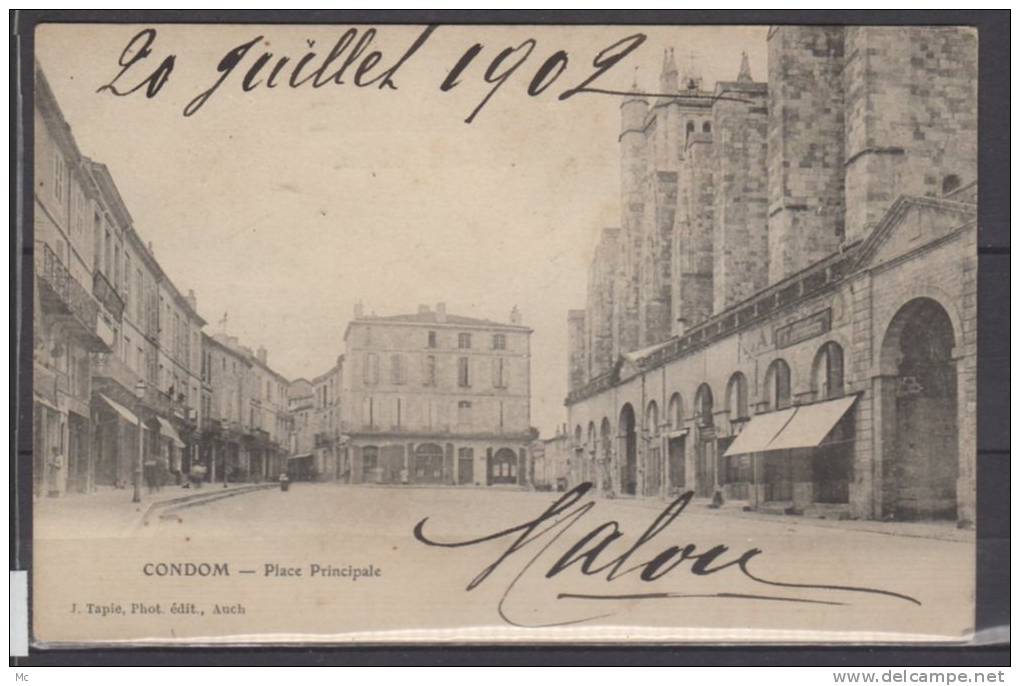 20 Juillet 1902
CONDOM — Place Principale
Malou
J. Tapie, Phot. édit., Auch
Mc
www.delcampe.net